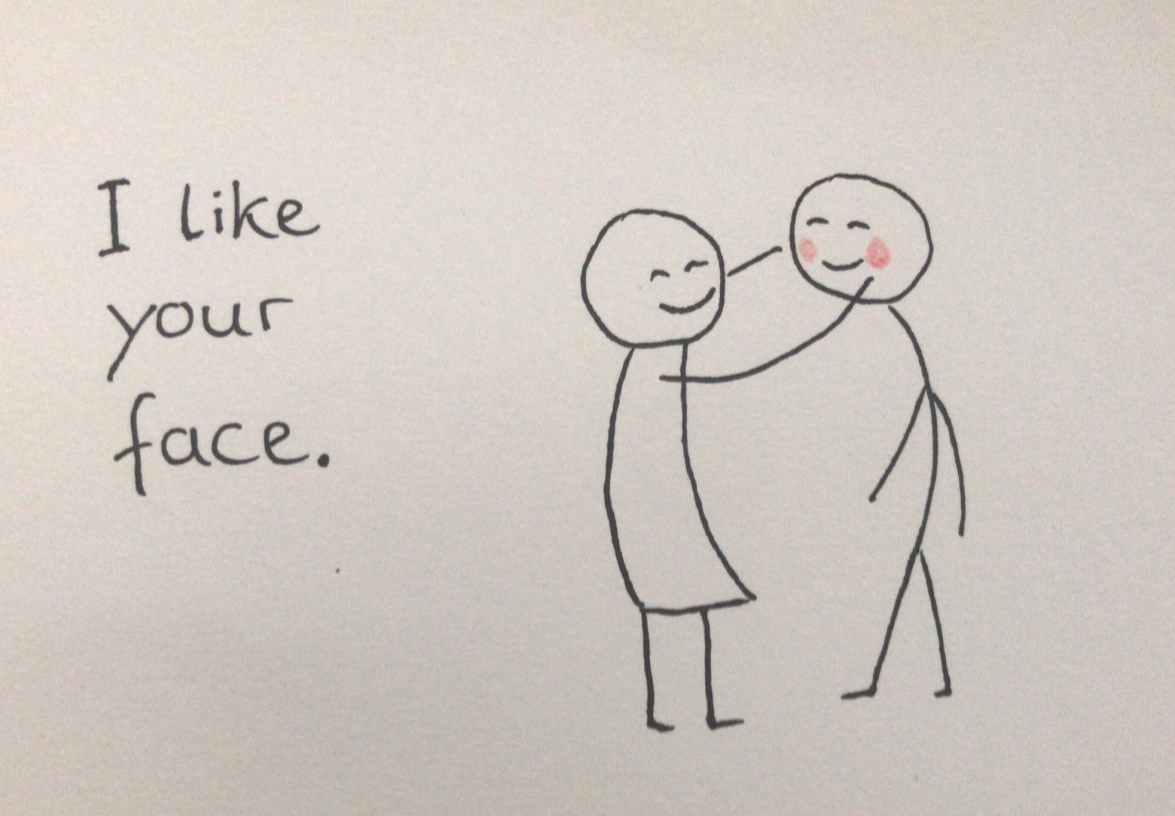 I like
your
face.